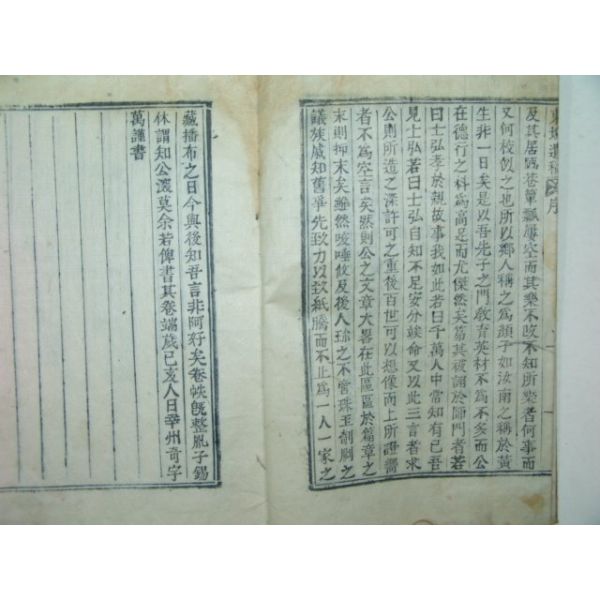 遺稿序
及其居陋巷簞瓢屢空而其樂不改不知所樂者何事而
又何校創之也所以鄕人稱之爲顔子如汝南之稱於黃
生非一日矣是以吾先子之門敎育英材不爲不多而公
在德行之科爲高足而尤傑然矣蓋其被詡於師門者若
曰士弘孝於親故事我如此若曰千萬人中常知有己吾
見士弘若曰士弘自知不足安分竢命又以此三言者求
公則所造之深許可之重後百世可以想像而上所證謂
者不爲空言矣然則公之文章大畧在此區區於篇章之
末則抑末矣雖然咳唾攸及後人珎之不啻珠玉剞劂之
議族戚知舊畢先致力以致紙騰而不止爲一人一家之
藏播布之日今與後知吾言非阿好矣卷帙旣整胤子錫
休謂知公深莫余若俾書其卷端歲己亥人日幸州奇宇
萬謹書